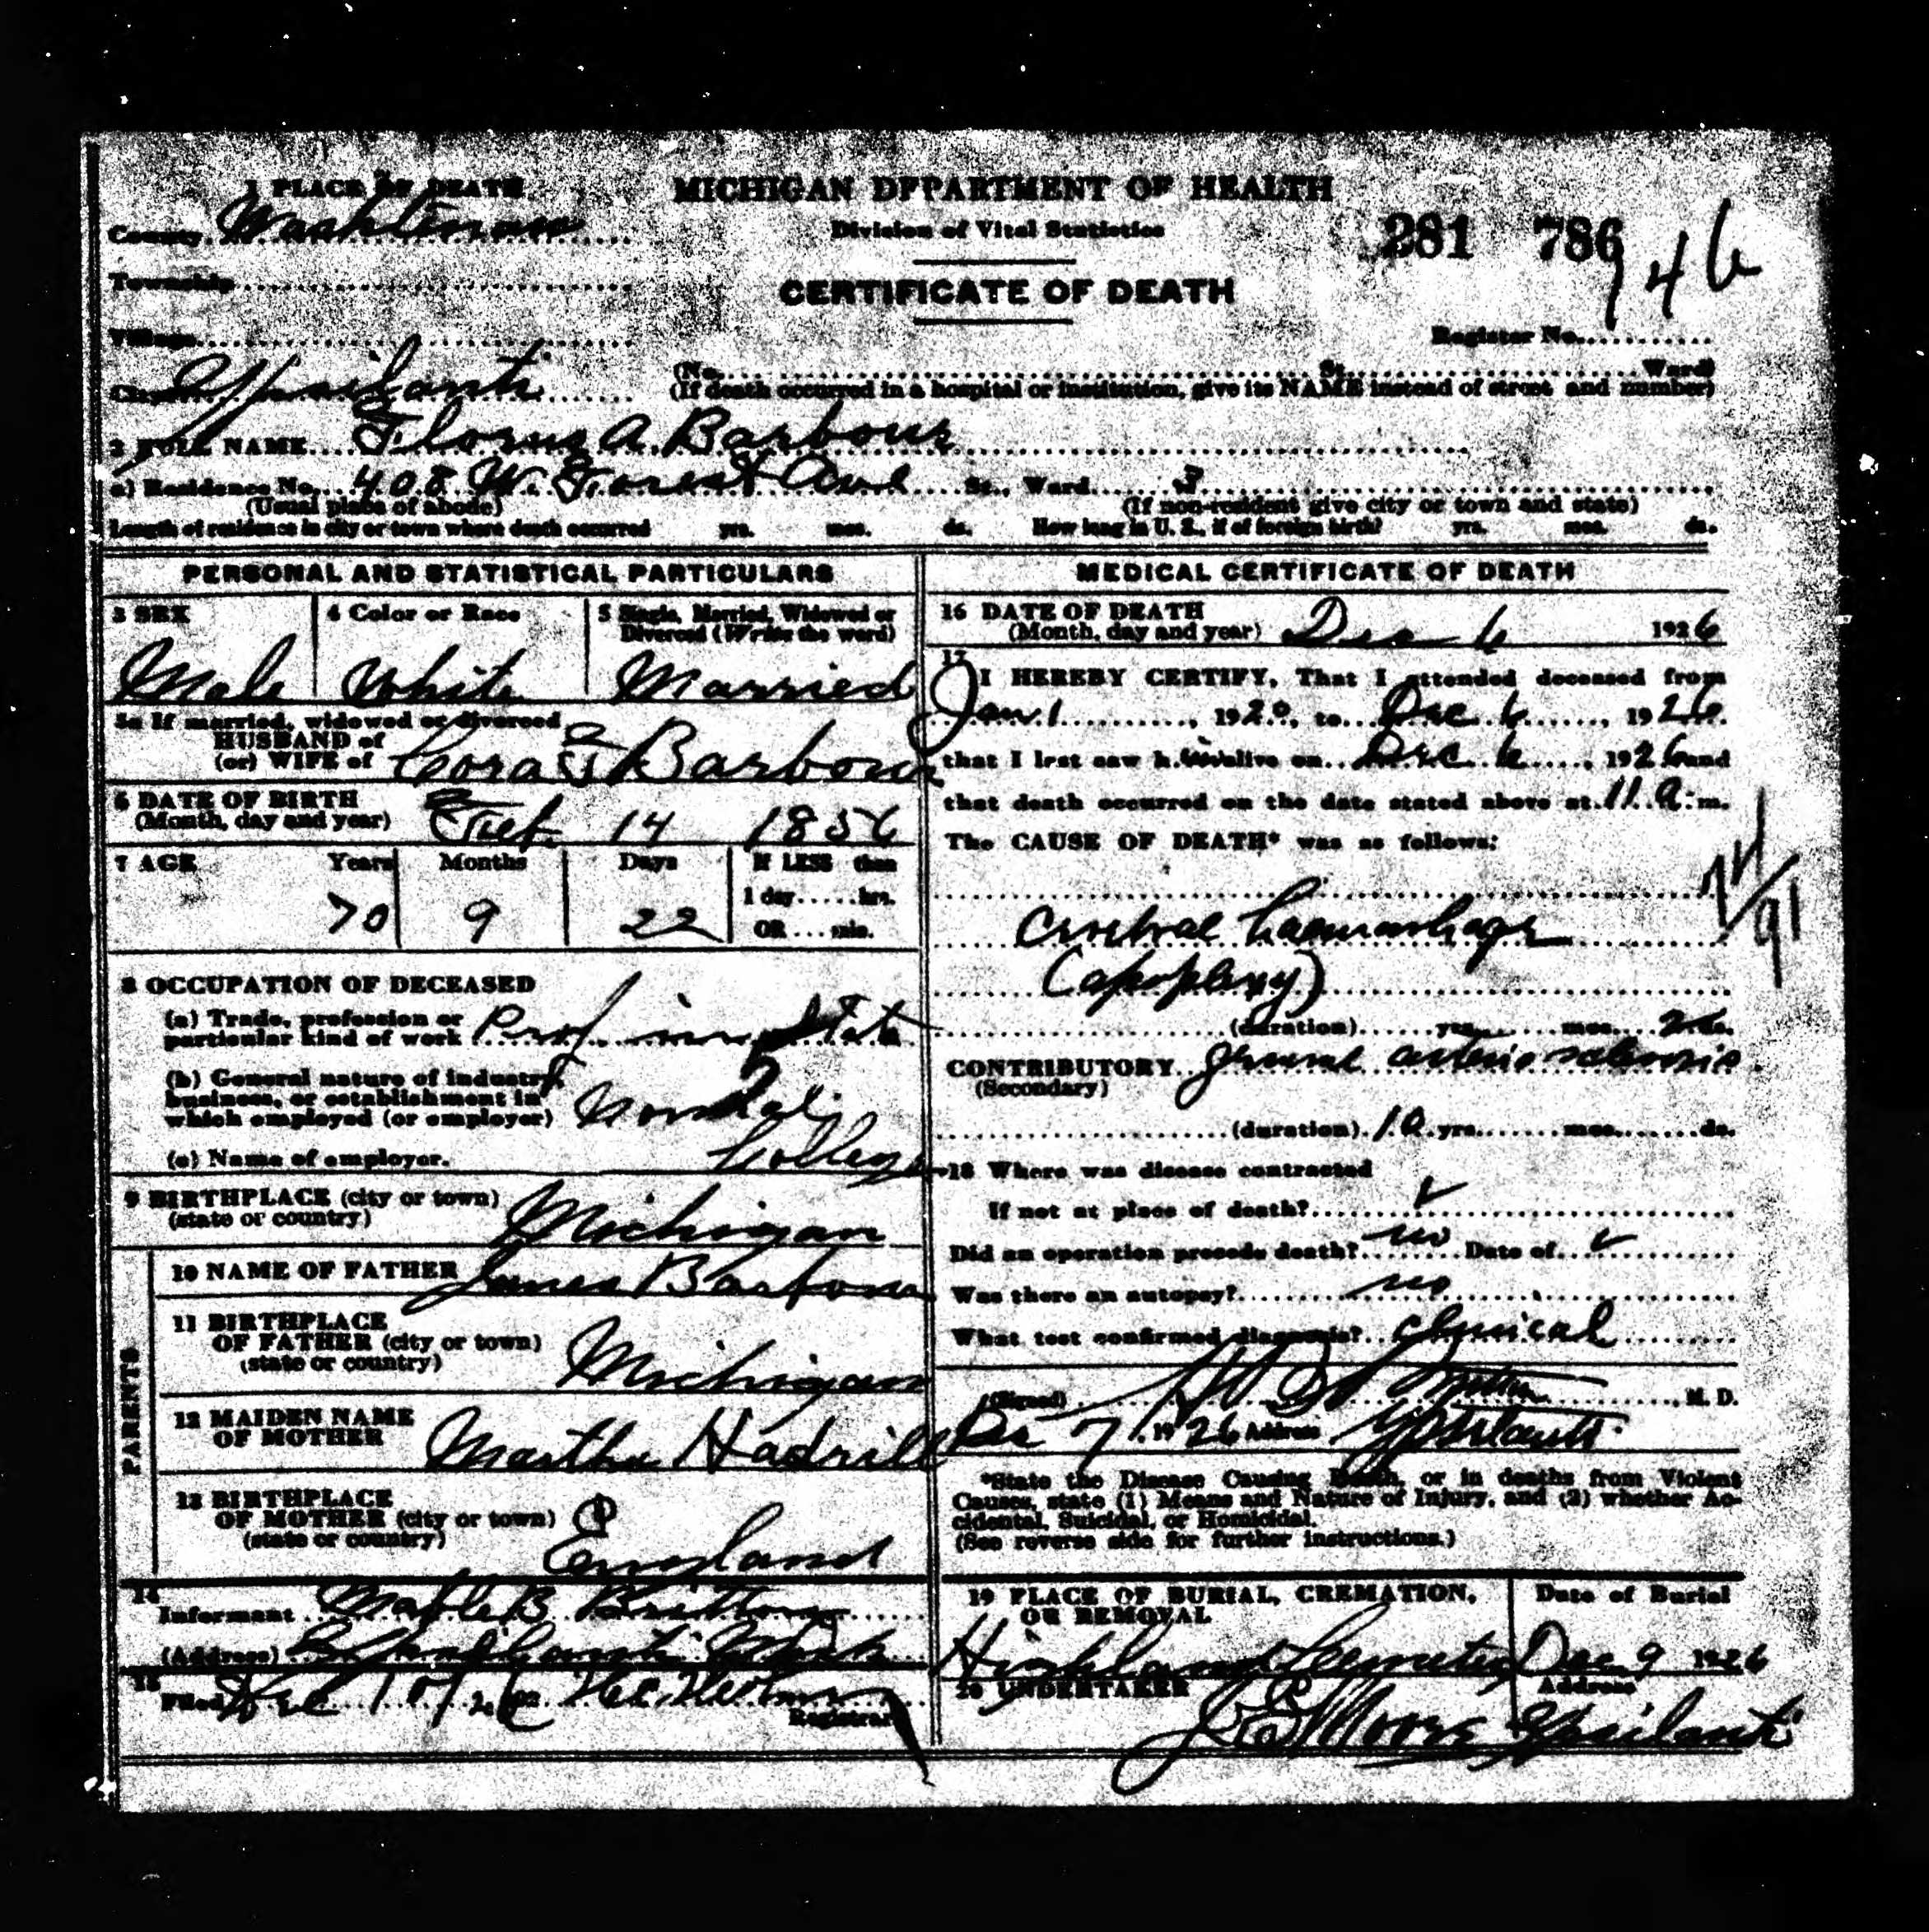 1 PLACE OF DEATH
MICHIGAN DEPARTMENT OF HEALTH
County Washtenaw
Division of Vital Statistics
281 786
146
Township
CERTIFICATE OF DEATH
Village
Register No.
City Ypsilanti
(No. St. Ward)
(If death occurred in a hospital or institution, give its NAME instead of street and number)
2 FULL NAME Florus A. Barbour
a) Residence No. 408 W. Forest Ave St., Ward 3
(Usual place of abode) (If non-resident give city or town and state)
Length of residence in city or town where death occurred yrs. mos. ds. How long in U. S., if of foreign birth? yrs. mos. ds.
PERSONAL AND STATISTICAL PARTICULARS
3 SEX 4 Color or Race 5 Single, Married, Widowed or
Divorced (Write the word)
Male White Married
5a If married, widowed or divorced
HUSBAND of
(or) WIFE of Cora J Barbour
6 DATE OF BIRTH
(Month, day and year) Feb. 14 1856
7 AGE Years Months Days If LESS than
1 day hrs.
70 9 22 OR min.
8 OCCUPATION OF DECEASED
(a) Trade, profession or
particular kind of work Prof. in State
(b) General nature of industry,
business, or establishment in
which employed (or employer) Normal
(c) Name of employer. College
9 BIRTHPLACE (city or town)
(state or country) Michigan
PARENTS
10 NAME OF FATHER James Barbour
11 BIRTHPLACE
OF FATHER (city or town)
(state or country) Michigan
12 MAIDEN NAME
OF MOTHER Martha Hadrill
13 BIRTHPLACE
OF MOTHER (city or town)
(state or country) England
14
Informant Mable B. Britton
(Address) Ypsilanti Mich
15
Filed Dec 10 1926
Registrar
MEDICAL CERTIFICATE OF DEATH
16 DATE OF DEATH
(Month, day and year) Dec 6 1926
17
I HEREBY CERTIFY, That I attended deceased from
Jan. 1, 1920, to Dec 6, 1926
that I last saw him alive on Dec 6, 1926 and
that death occurred on the date stated above at 11 a. m.
The CAUSE OF DEATH* was as follows:
74/91
Cerebral haemorrhage
(apoplexy)
(duration) yrs. mos. 2 ds.
CONTRIBUTORY general arterio sclerosis
(Secondary)
(duration) 10 yrs. mos. ds.
18 Where was disease contracted
If not at place of death? ✓
Did an operation precede death? no Date of ✓
Was there an autopsy? no
What test confirmed diagnosis? clinical
(Signed) M. D.
Dec 7, 1926 Address Ypsilanti
*State the Disease Causing Death, or in deaths from Violent
Causes, state (1) Means and Nature of Injury, and (2) whether Ac-
cidental, Suicidal, or Homicidal.
(See reverse side for further instructions.)
19 PLACE OF BURIAL, CREMATION,
OR REMOVAL
Date of Burial
Highland Cemetery Dec 9 1926
20 UNDERTAKER Address
J E Moore Ypsilanti